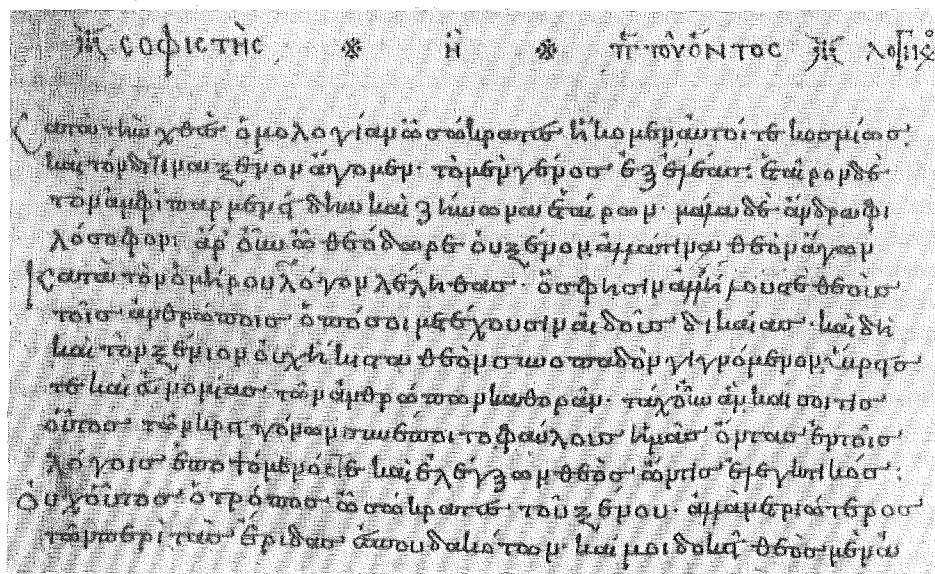 σοφιστὴς ※ ἢ ※ π τοῦ ὄντος λογικὸς
Κατὰ τὴν χθὲς ὁμολογίαν ὦ σώκρατες ἥκομεν αὐτοί τε κοσμίως·
καὶ τόνδε τινὰ ξένον ἄγομεν· τὸ μὲν γένος ἐξ ἐλέας· ἑταῖρον δὲ
τὸν ἀμφὶ παρμενίδην καὶ ζήνωνα ἑταίρων· μάλα δὲ ἄνδρα φι
λόσοφον: ἆρ' οὖν ὦ θεόδωρε οὐ ξένον ἀλλά τινα θεὸν ἄγων
κατὰ τὸν ὁμήρου λόγον λέληθας· ὅς φησιν ἄλλους τε θεοὺς
τοῖς ἀνθρώποις ὁπόσοι μετέχουσιν αἰδοῦς δικαίας· καὶ δὴ
καὶ τὸν ξένιον οὐχ ἥκιστα θεὸν συνοπαδὸν γιγνόμενον ὕβρεις
τε καὶ εὐνομίας τῶν ἀνθρώπων καθορᾶν· τάχ' οὖν ἂν καὶ σοί τις
οὗτος τῶν κρειττόνων συνέποιτο φαύλους ἡμᾶς ὄντας ἐν τοῖς
λόγοις ἐποψόμενός τε καὶ ἐλέγξων θεὸς ὤν τις ἐλεγκτικός:
Οὐχ οὗτος ὁ τρόπος ὦ σώκρατες τοῦ ξένου· ἀλλὰ μετριώτερος
τῶν περὶ τὰς ἔριδας ἐσπουδακότων· καί μοι δοκεῖ θεὸς μὲν ἁ